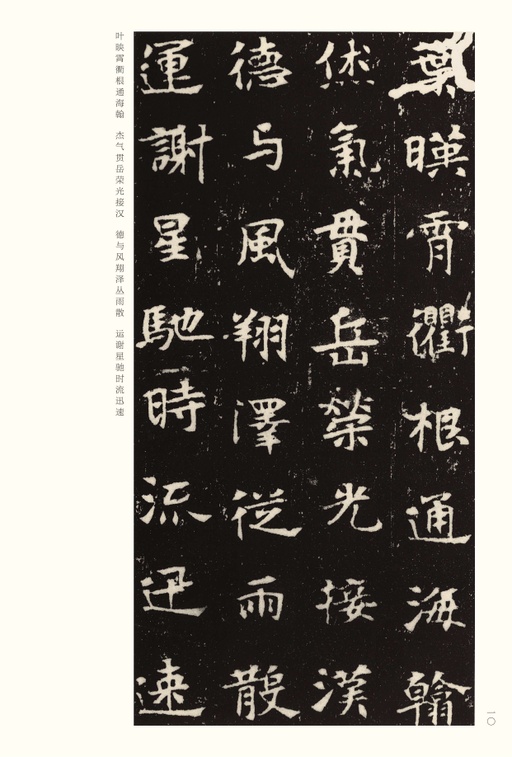 葉暎霄衢根通海翰
伏氣貫岳榮光接漢
德与風翔澤從雨散
運謝星馳時流迅速
叶映霄衢根通海翰 杰气贯岳荣光接汉 德与风翔泽丛雨散 运谢星驰时流迅速
一〇